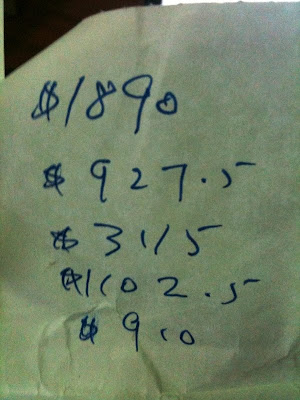 $1890
$927.5
$3115
$1102.5
$910